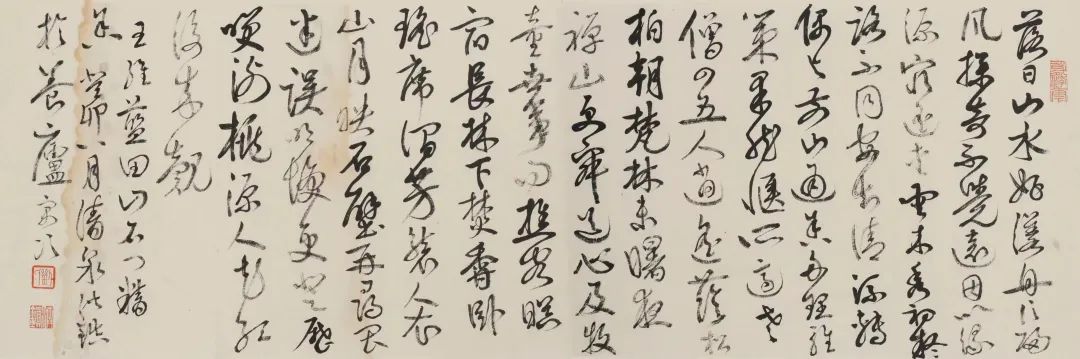 落日山水好漾舟信歸
風探奇不覺遠因以緣
源窮遙愛雲木秀初疑
路不同安知清流轉
偶與前山通舍舟理輕
策果然愜所適老
僧四五人逍遙蔭松
柏朝梵林未曙夜
禪山更寂道心及牧
童世事問樵客暝
宿長林下焚香臥
瑤席澗芳襲人衣
山月映石壁再尋畏
迷誤明發更登歷
笑謝桃源人花紅
復來覿
王維藍田山石門精
舍癸卯八月清泉
於養廬